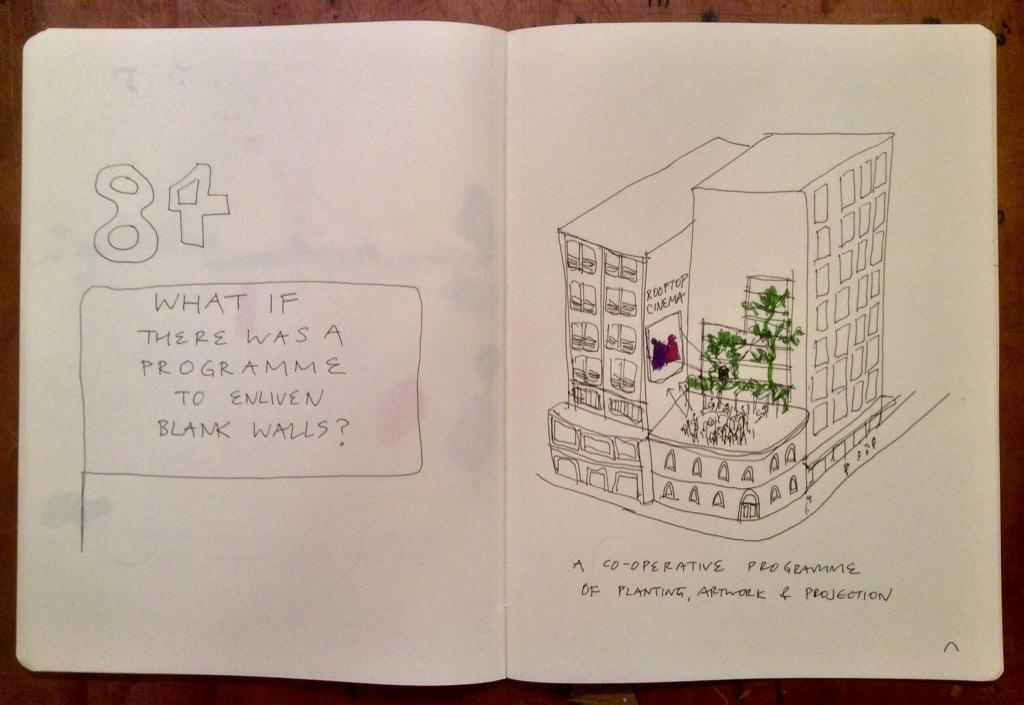 84
WHAT IF
THERE WAS A
PROGRAMME
TO ENLIVEN
BLANK WALLS?
ROOFTOP
CINEMA
A CO-OPERATIVE PROGRAMME
OF PLANTING, ARTWORK & PROJECTION